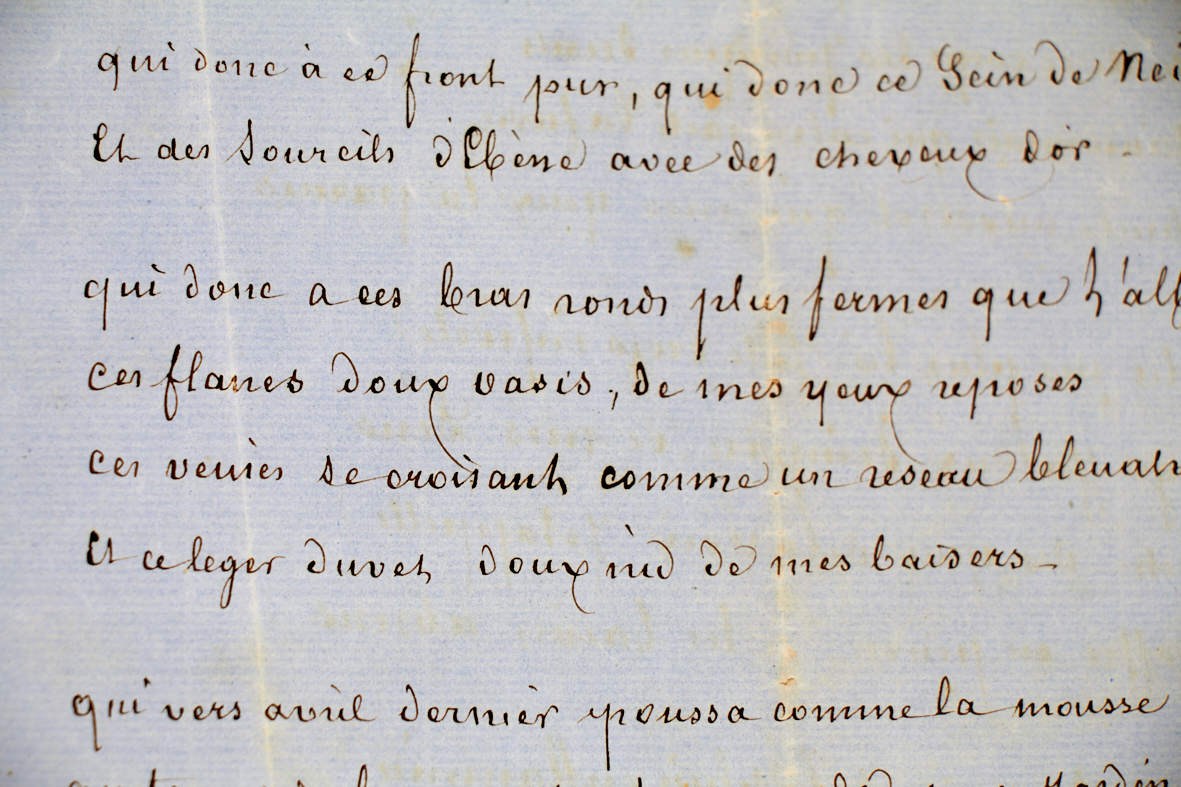 qui donc à ce front pur, qui donc ce Sein de Nei
Et des Sourcils d'Ebène avec des cheveux d'or -
qui donc a ces bras ronds plus fermes que l'alb
ces flancs doux oasis, de mes yeux reposes
ces veines se croisant comme un reseau bleuatr
Et ce leger duvet doux nid de mes baisers -
qui vers avril dernier poussa comme la mousse